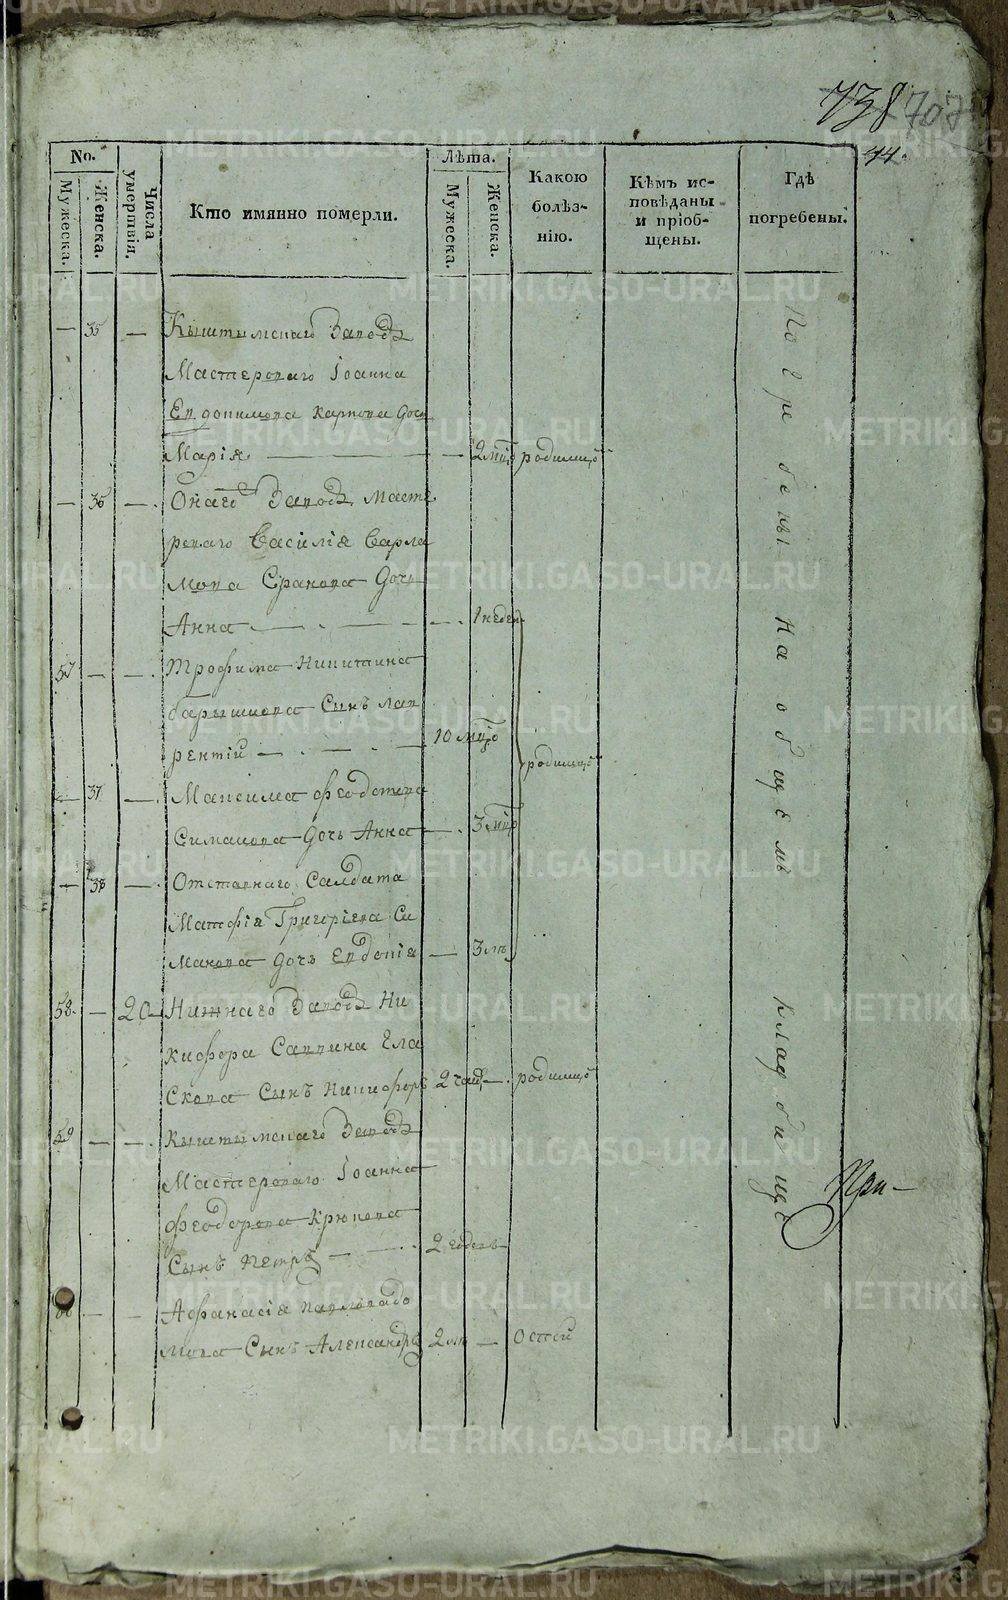 738 707
44.
No.
Мужеска.
Женска.
Числа умертвія.
Кто имянно померли.
Лѣта.
Мужеска.
Женска.
Какою болѣзнію.
Кѣмъ исповѣданы и пріобщены.
Гдѣ погребены.
— 35 — Кыштымскаго Завода
Мастероваго Іоанна
Евдокимова Карпова дочь
Марія — — 2 мцъ родимцѣ
— 36 — Онаго Завода Масте
роваго Василія Варла
мова Сракова Дочь
Анна — — 1 недѣл
57 — — Трофима Никитина
барышнова Сынъ Лав
рентій — 10 мцъ родимцѣ
— 37 — Максима Феодотова
Симакова дочь Анна — 3 мцъ
— 38 — Отставнаго Салдата
Матфія Григоріева Си
макова дочь Евдокія — 3 лѣ
58 — 20 Нижнаго Завода Ни
кифора Саввина Ела
Скова Сынъ Никифоръ 2 час — родимцѣ
59 — — Кыштымскаго Завода
Мастероваго Іоанна
Феодорова Крюкова
Сынъ Петръ — 2 недѣль
60 — — Афанасія Пармова
мова Сынъ Александръ 2 лѣ — Оспой
Погребены На общемъ кладбище
При-